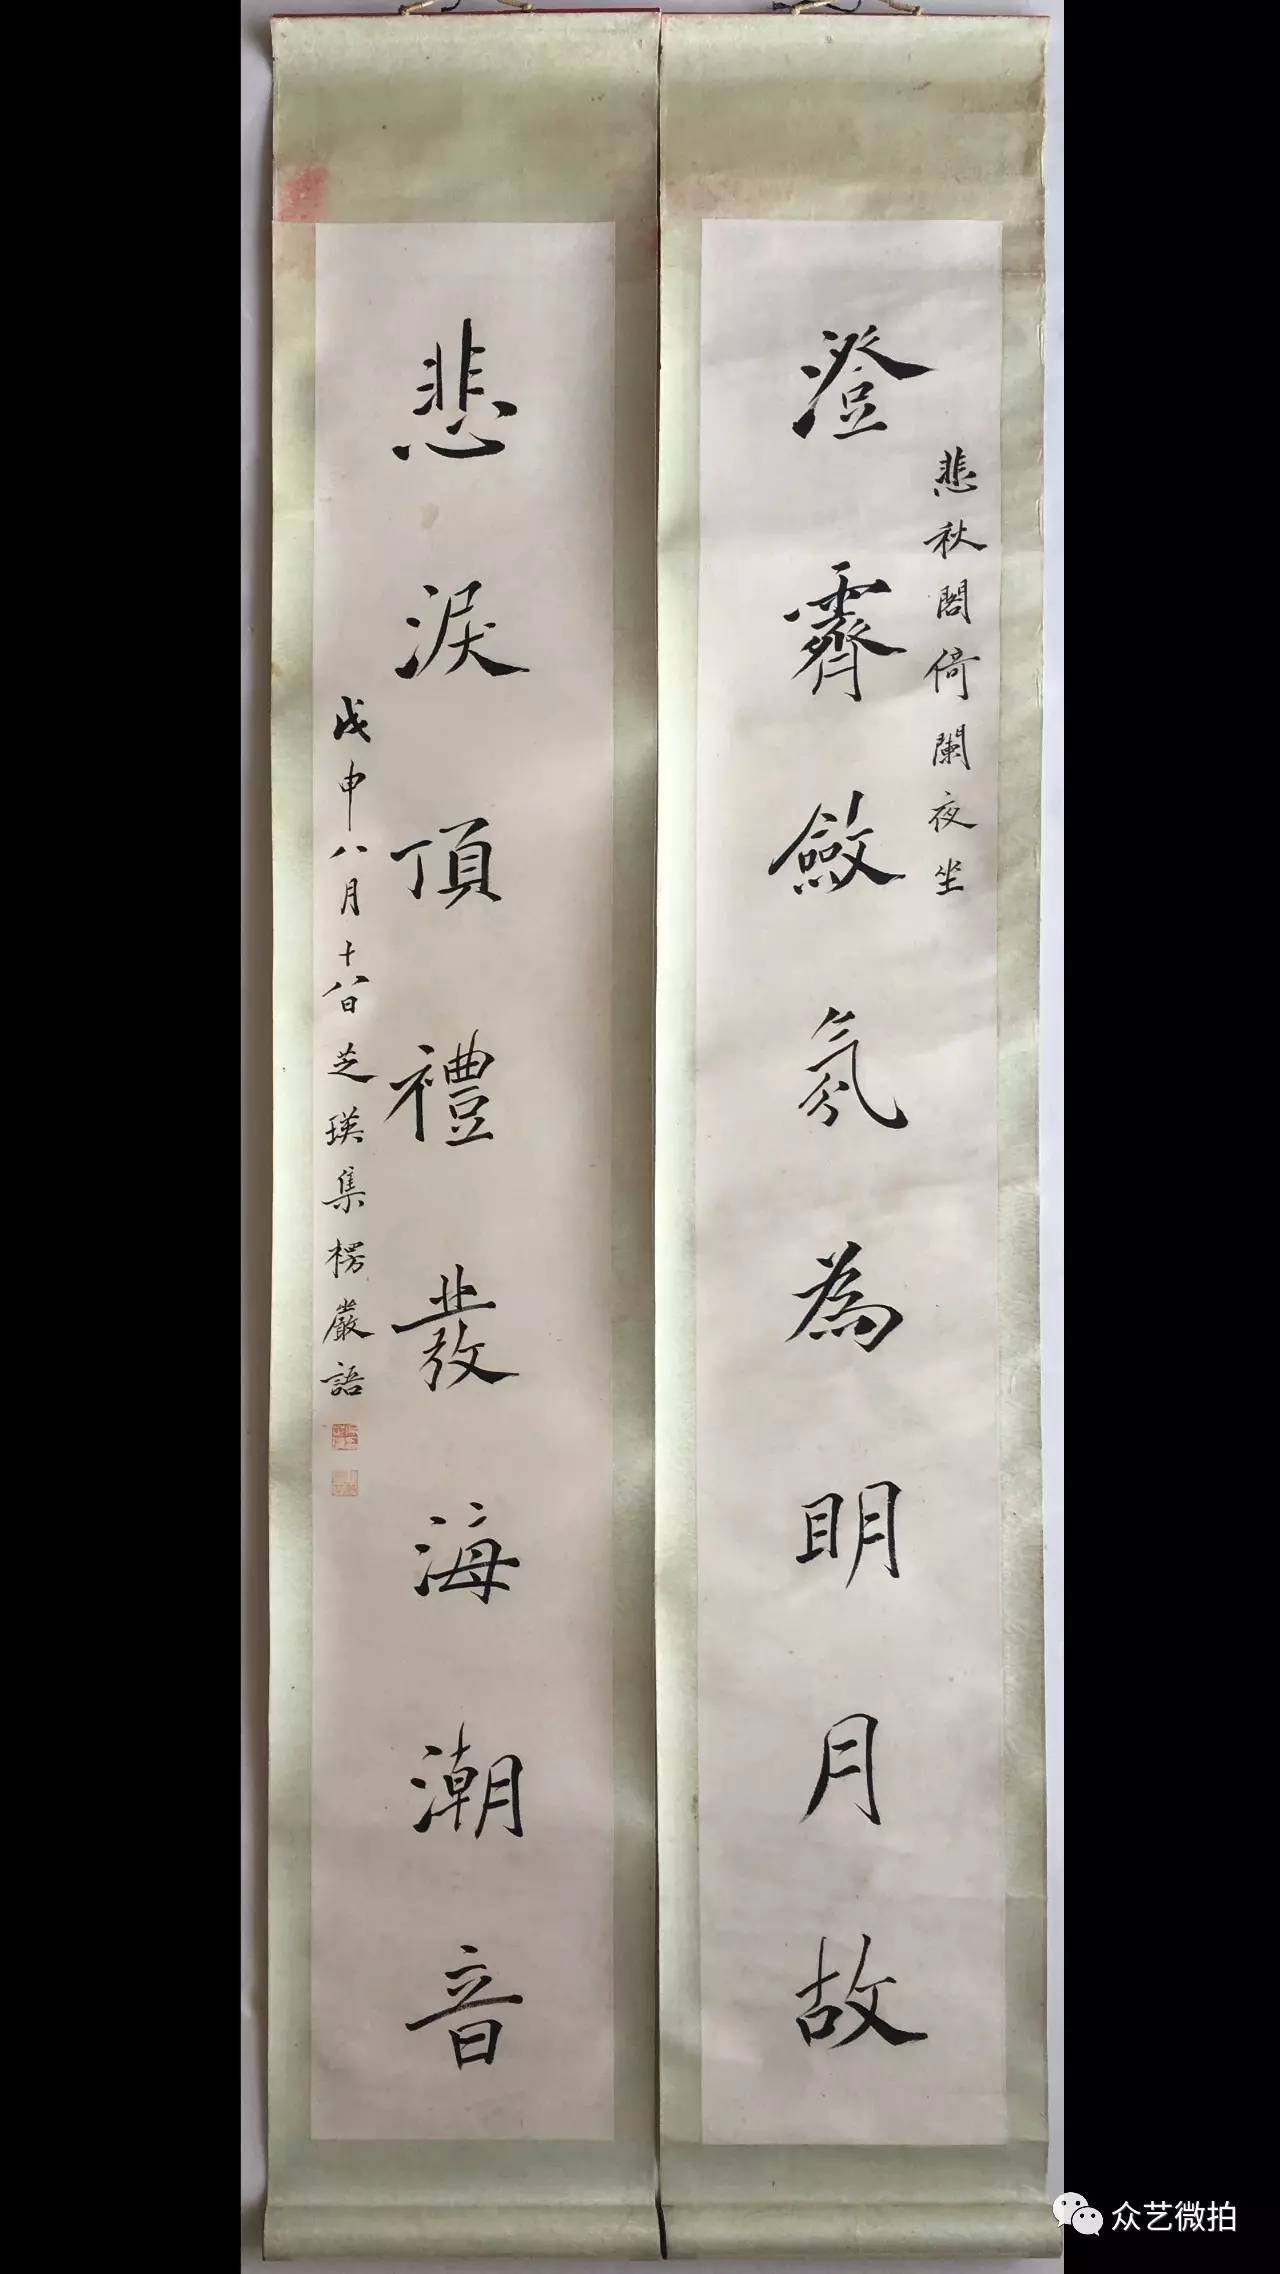 悲秋閣倚闌夜坐
澄霽斂氛為明月故
悲淚頂禮發海潮音
戊申八月十八日芝瑛集楞嚴語
众艺微拍